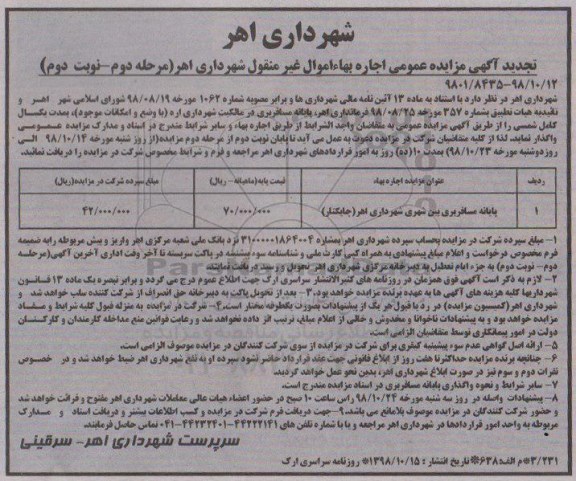 شهرداری اهر
تجدید آگهی مزایده عمومی اجاره بهاءاموال غیر منقول شهرداری اهر(مرحله دوم-نوبت دوم)
۹۸۰۱/۸۴۳۵-۹۸/۱۰/۱۲
شهرداری اهر در نظر دارد با استناد به ماده ۱۳ آئین نامه مالی شهرداری ها و برابر مصوبه شماره ۱۰۶۲ مورخه ۹۸/۰۸/۱۹ شورای اسلامی شهر اهر و
تائیدیه هیات تطبیق بشماره ۳۵۷ مورخه ۹۸/۰۸/۲۵ فرمانداری اهر، پایانه مسافربری در مالکیت شهرداری اره (با وضع و امکانات موجود)، بمدت یکسال
کامل شمسی را از طریق آگهی مزایده عمومی به متقاضیان واجد الشرایط از طریق اجاره بهاء و سایر شرایط مندرج در اسناد و مدارک مزایده عمومی
واگذار نماید. لذا از کلیه متقاضیان شرکت در مزایده دعوت به عمل می آید تا پایان نوبت دوم از مرحله دوم مزایده(از روز شنبه مورخه ۹۸/۱۰/۱۴ الی
روزدوشنبه مورخه ۹۸/۱۰/۲۳) بمدت ۱۰(ده) روز به امور قراردادهای شهرداری اهر مراجعه و فرم و شرایط مخصوص شرکت در مزایده را دریافت نمائید.
ردیف عنوان مزایده اجاره بهاء قیمت پایه(ماهیانه-ریال) مبلغ سپرده شرکت در مزایده(ریال)
۱ پایانه مسافربری بین شهری شهرداری اهر(جایکنار) ۷۰/۰۰۰/۰۰۰ ۴۲/۰۰۰/۰۰۰
۱- مبلغ سپرده شرکت در مزایده بحساب سپرده شهرداری اهر بشماره ۳۱۰۰۰۰۱۸۶۴۰۰۴ نزد بانک ملی شعبه مرکزی اهر واریز و فیش مربوطه رابه ضمیمه
فرم مخصوص درخواست و اعلام مبلغ پیشنهادی به همراه کپی کارت ملی و شناسنامه سود بسته در پاکت سربسته تا آخر وقت اداری آخرین آگهی(مرحله
دوم- نوبت دوم) به جزء ایام تعطیل به دبیرخانه مرکزی شهرداری اهر تحویل و رسید دریافت نمائید.
۲- لازم به ذکر است آگهی فوق همزمان در روزنامه های کثیرالانتشار سراسری ارک جهت اطلاع عموم درج می گردد و برابر تبصره یک ماده ۱۳ قانون
شهرداریها کلیه هزینه های آگهی ها به عهده برنده مزایده خواهد بود.۳- بعد از تحویل پاکت به دبیرخانه حق انصراف از شرکت کننده سلب خواهد شد و
شهرداری اهر (کمیسیون مزایده) در رد یا قبول هر یک از پیشنهادات بصورت یکطرفه مختار است.۴- شرکت در مزایده به منزله قبول کلیه شرایط و مفاد
مزایده خواهد بود و به پیشنهادات ناخوانا و مخدوش و خالی از اعلام مبلغ، ترتیب اثر داده نخواهد شد و رعایت قوانین منع مداخله کارمندان و کارکنان
دولت در امور پیمانکاری توسط متقاضیان الزامی است.
۵- ارائه اصل گواهی عدم سوء پیشینه کیفری برای شرکت در مزایده از سوی شرکت کنندگان در مزایده موصوف الزامی است.
۶- چنانچه برنده مزایده حداکثرتا هفت روز از ابلاغ قانونی جهت عقد قرارداد حاضر نشود سپرده او به نفع شهرداری اهر ضبط خواهد شد و در خصوص
نفرات دوم و سوم نیز در صورت ابلاغ شهرداری اهر، بدین نحو عمل خواهد گردید.
۷- سایر شرایط و نحوه واگذاری پایانه مسافربری در اسناد مزایده مندرج است.
۸- پیشنهادات واصله در روز سه شنبه مورخه ۹۸/۱۰/۲۴ راس ساعت ۱۰ صبح در حضور اعضاء هیات عالی معاملات شهرداری اهر مفتوح و قرائت خواهد شد
و حضور شرکت کنندگان در مزایده موصوف بلامانع می باشد.۹-جهت دریافت فرم شرکت در مزایده و کسب اطلاعات بیشتر و دریافت اسناد و مدارک
مربوطه به واحد امور قراردادها در شهرداری اهر مراجعه و یا با شماره تلفن های ۴۴۲۲۲۱۴۱-۴۴۲۳۲۴۰۱-۰۴۱ تماس حاصل فرمائید.
سرپرست شهرداری اهر- سرقینی
۳/۲۳۱*م الف:۶۳۸*تاریخ انتشار : ۱۳۹۸/۱۰/۱۵* روزنامه سراسری ارک